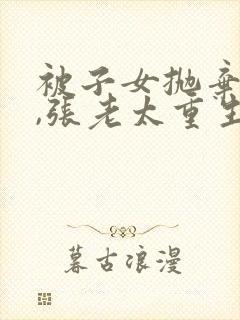 被子女抛弃
,张老太重生
暮古浪漫